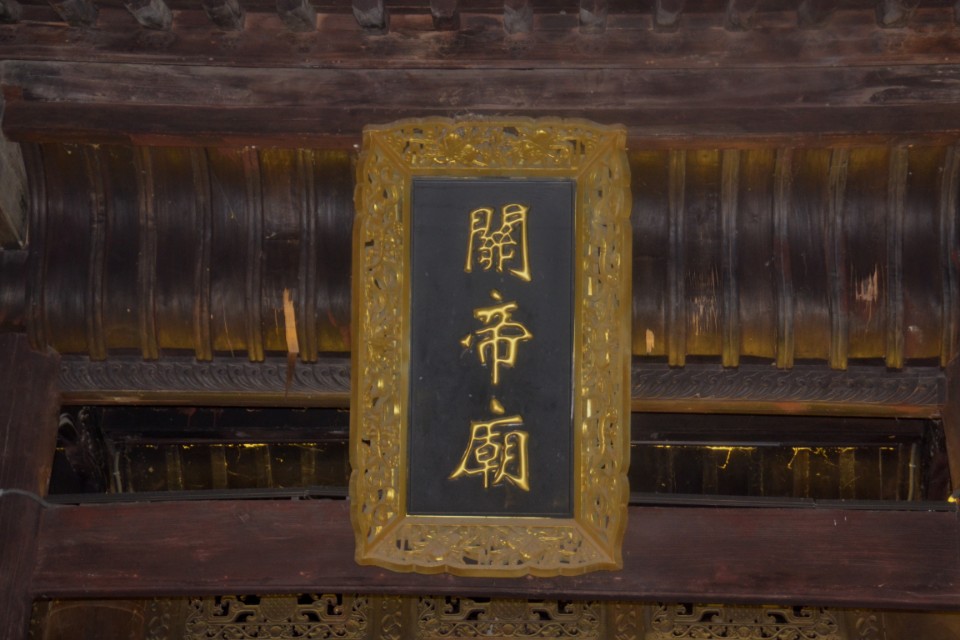 關帝廟